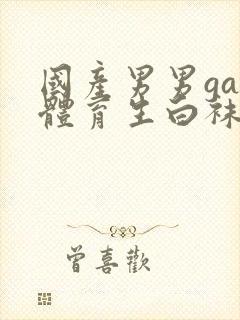 國產男男ga
體育生白袜
曾喜歡